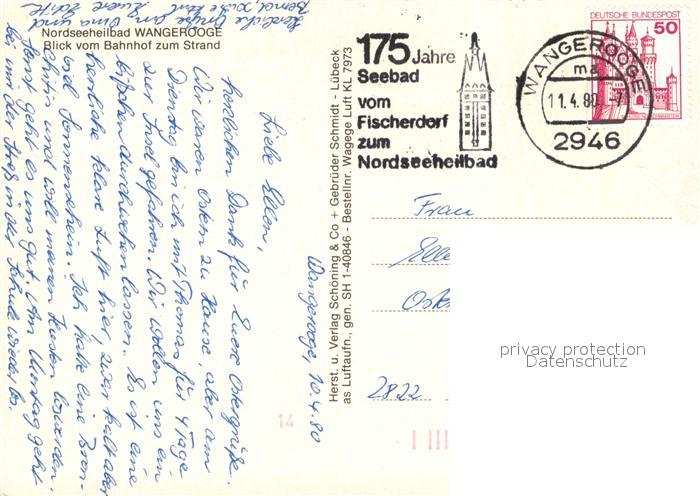 Nordseeheilbad WANGEROOGE
Blick vom Bahnhof zum Strand
Wangerooge, 10.4.80
Liebe Ellen,
herzlichen Dank für Eure Ostergrüße.
Wir waren Ostern zu Hause, aber am
Dienstag bin ich mit Thomas für 4 Tage
zur Insel gefahren. Wir wollen uns ein
bißchen durchwehen lassen. Es ist eine
herrliche klare Luft hier, zwar kalt aber
viel Sonnenschein. Ich habe eine Bron-
chitis und will meinen Husten loswerden.
Sonst geht es uns gut. Am Montag geht
bei mir der Streß in der Schule wieder los.
Herzliche Grüße an Oma und
Eure
Herst. u. Verlag Schöning & Co + Gebrüder Schmidt - Lübeck
as Luftaufn., gen. SH 1-40846 - Bestellnr. Wagege Luft KL 7973
175 Jahre
Seebad
vom
Fischerdorf
zum
Nordseeheilbad
WANGEROOGE
ma
11.4.80 -7
2946
DEUTSCHE BUNDESPOST
50
Frau
Elle
Oste
2822
14
privacy protection
Datenschutz